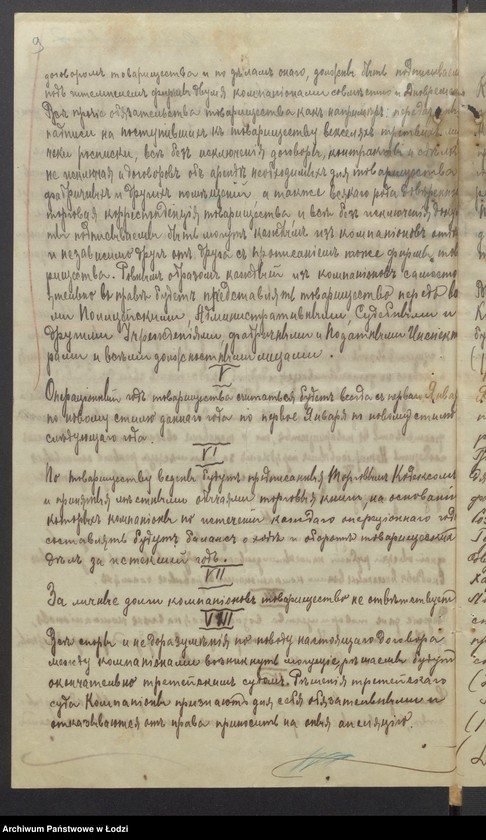 9
договоромъ товарищества и по дѣламъ онаго, должны быть подписываемы
подъ штемпелемъ фирмы двумя компаніонами совмѣстно и
Всѣ прочіе обязательства товарищества какъ напримѣръ:
на поступившихъ къ товариществу векселяхъ третьихъ
чеки росписки, всѣ безъ исключенія договоры, контракты и
не исключая и договоровъ объ арендѣ необходимыхъ для товарищества
фабричныхъ и другихъ помѣщеній а также всякого рода
торговая корреспонденція товарищества и всѣ безъ исключенія
подписываемы быть могутъ каждымъ изъ компаніоновъ
и независимо другъ отъ друга съ прописаніемъ тоже фирмы
рищества. Равнымъ образомъ каждый изъ компаніоновъ
въ правѣ будетъ представлять товарищество передъ
ми Полицейскими, Административными, Судебными и
другими Учрежденіями, фабричными и Податными
рами и всѣми должностными лицами.
V
Операціонный годъ товарищества считаться будетъ всегда съ перваго
по новому стилю даннаго года по первое Января по новому стилю
слѣдующаго года.
VI
По товариществу ведены будутъ предписанныя Торговымъ Кодексомъ
и принятыя мѣстными обычаями торговыя книги, на основаніи
которыхъ компаніоны по истеченіи каждаго операціоннаго
составлять будутъ балансъ о ходѣ и оборотѣ товарищескихъ
дѣлъ за истекшій годъ.
VII
За личные долги компаніоновъ товарищество не отвѣтствуетъ
VIII
Всѣ споры и недоразумѣнія по поводу настоящаго договора
между компаніонами возникнуть могущіе, рѣшаемы будутъ
окончательно третейскимъ судомъ. Рѣшенія третейскаго
суда Компаніоны признаютъ для себя обязательными и
отказываются отъ права приносить на оныя апелляцію.
Archiwum Państwowe w Łodzi